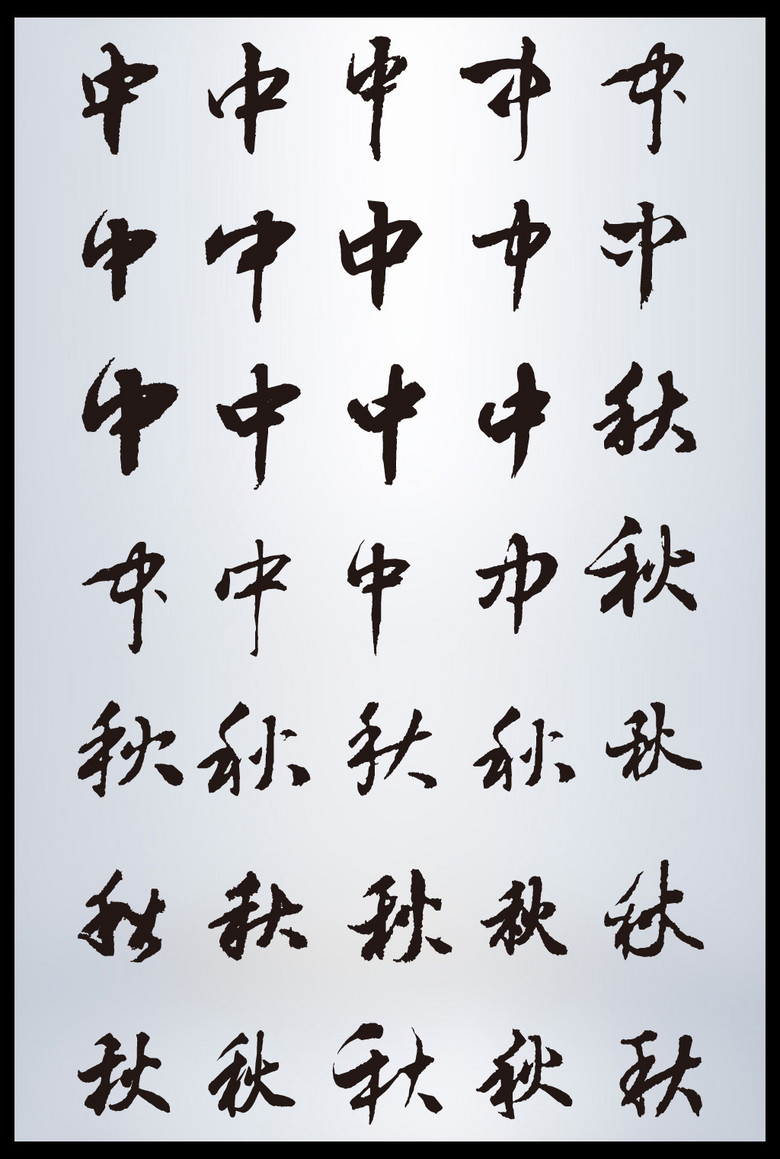 中中中中中
中中中中中
中中中中秋
中中中中秋
秋秋秋秋秋
秋秋秋秋秋
秋秋秋秋秋